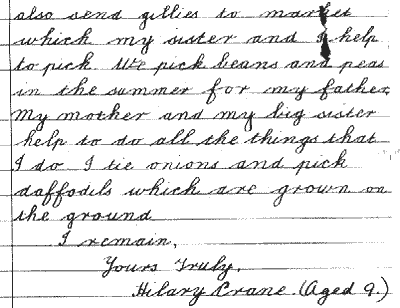 also send gillies to market
which my sister and I help
to pick We pick beans and peas
in the summer for my father,
My mother and my big sister
help to do all the things that
I do I tie onions and pick
daffodils which are grown on
the ground
I remain,
Yours Truly,
Hilary Crane. (Aged 9.)